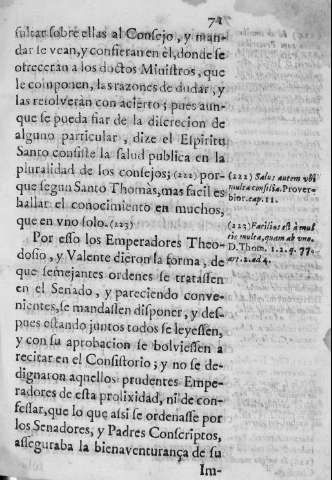 71
sultar sobre ellas al Consejo, y man-
dar se vean, y confieran en èl, donde se
ofreceràn à los doctos Ministros, que
le componen, las razones de dudar, y
las resolveràn con acierto; pues aun-
que se pueda fiar de la discrecion de
alguno particular, dize el Espiritu
Santo consiste la salud publica en la
pluralidad de los consejos; (222) por-
que segun Santo Thomàs, mas facil es
hallar el conocimiento en muchos,
que en vno solo. (223)
Por esso los Emperadores Theo-
dosio, y Valente dieron la forma, de
que semejantes ordenes se tratassen
en el Senado, y pareciendo conve-
nientes, se mandassen disponer, y des-
pues estando juntos todos se leyessen,
y con su aprobacion se bolviessen à
recitar en el Consistorio; y no se de-
dignaron aquellos prudentes Empe-
radores de esta prolixidad, ni de con-
fessar, que lo que assi se ordenasse por
los Senadores, y Padres Conscriptos,
asseguraba la bienaventurança de su
Im-
(222) Salus autem vbi
multa consilia. Prover-
bior. cap. 11.
(223) Facilius est à mul-
tis multa, quam ab vno.
D. Thom. 1. 2. q. 77.
art. 2. ad 4.